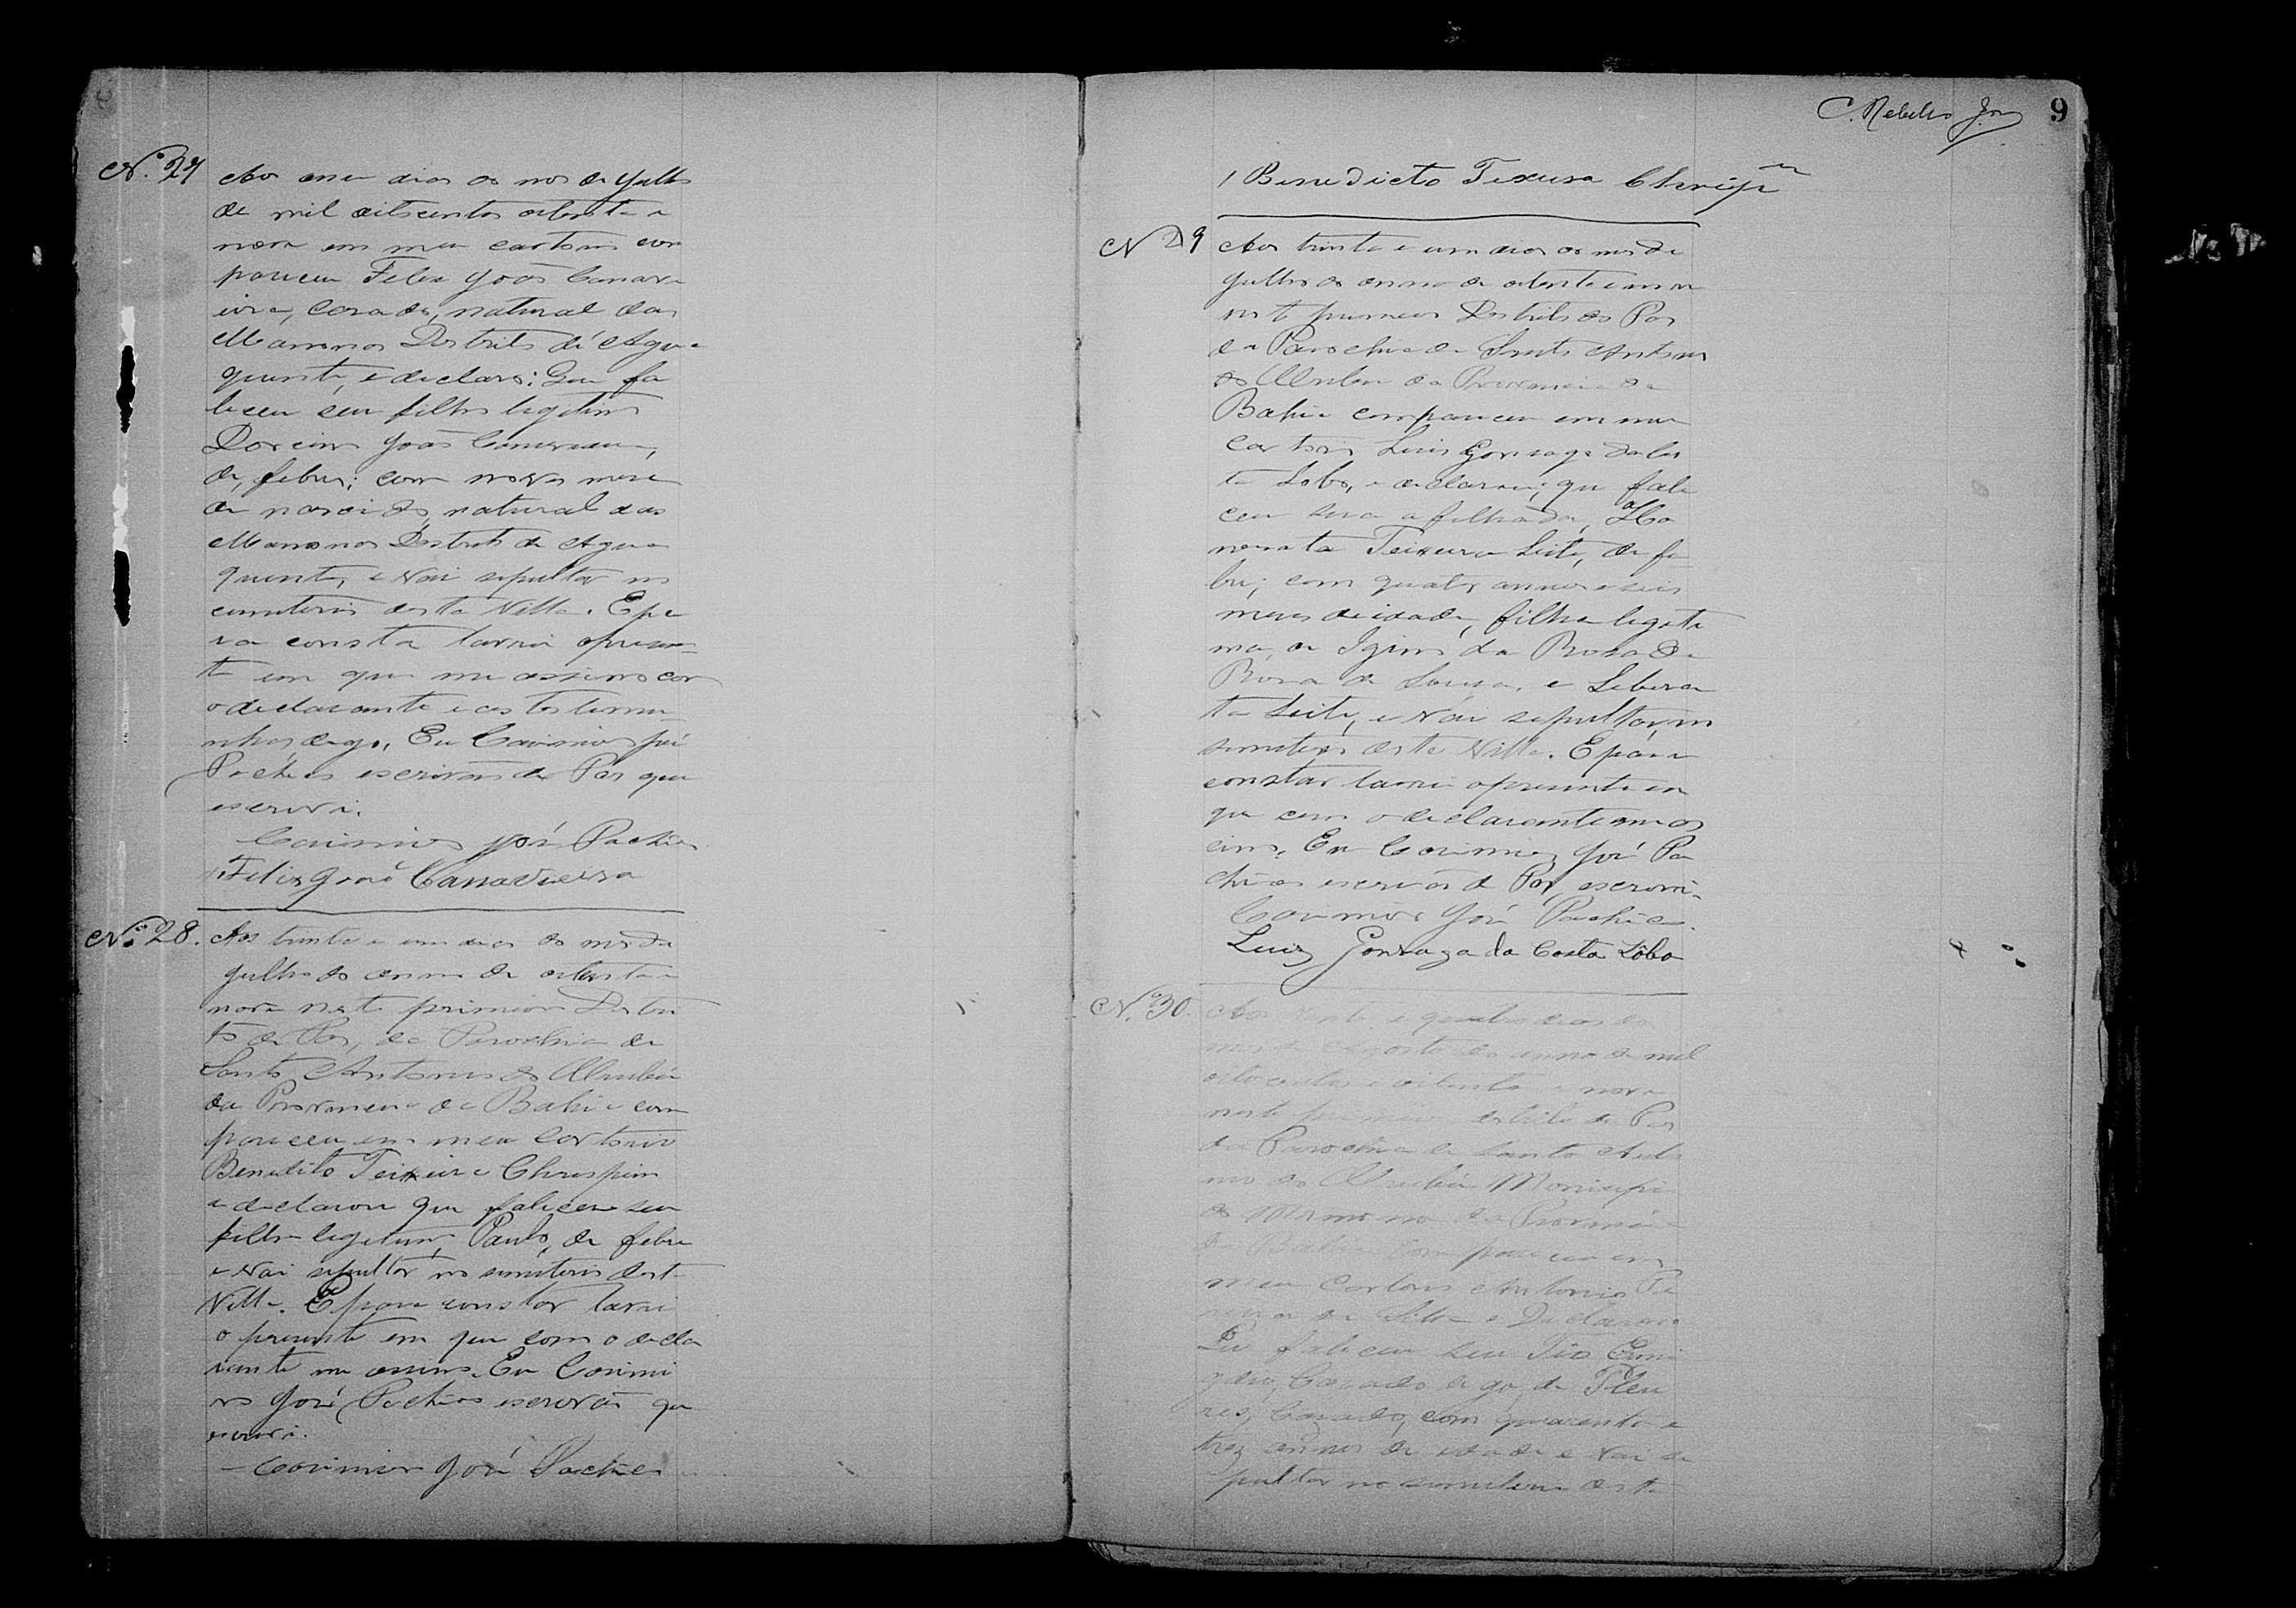 Nº 27
Aos onse dias do mes de Julho
de mil oitscentos oitenta e
nove em meu cartorio com
pareceu Felix João Canavi
eira, casado, natural das
Mamonas Destrito d'Agua
quente, e declaro: Que fa
leceu seu filho legitimo
João
de, febre; com nove mese
de nascido, natural das
Mamonas Destrito de Agua
quente, e vai sepultar no
cemiterio desta Villa. E pa
ra consta lavrei o presen=
te em que me assino com
o declarante e as testemu
nhas Eu Casimiro José
Pachêco escrivão de Pas que
escrevi.
Casimiro José Pachêco
Felix João Canavieira
Nº 28.
Aos trinta e um dias do mes de
Julho do anno de oitenta e
nove neste primeiro Destri
to de Pas, da Parochia de
Santo Antonio do Urubú
da Provincia da Bahia com
pareceu em meu Cartorio
Benedito Teixeira Chrespim
e declarou que faleceu seu
filho legitimo, Paulo, de febre
e vai sepultar no semiterio desta
Villa. E para constar lavrei
o presente em que com o decla
rante me assino. Eu Casimi
ro José Pachêco escrivão que
escrevi.
- Casimiro José Pachêco
C. Rebello 9
Benedicto Texeira
N 29
Aos trinta e um dias do mes de
Julho do anno de oitenta e nove
neste primeiro Destrito de Pas
da Parochia de Santo Antonio
do Urubu da Provincia da
Bahia compareceu em meu
Cartorio Luis Gonsaga da Cos
ta Lobo, e declarou; que fale
ceu sua afilhada,
Teixeira Leite, de fe
bre; com quatro annos e seis
meses de idade, filha legiti
ma, de
Rosa de Sousa, e Libera
ta Leite, e vai sepultar, no
semiterio desta Villa. E para
constar lavrei o presente em
que com o declarante me as
sino. Eu Casimiro José Pa
chêco escrivão de Pas, escrevi.
Casimiro José Pachêco.
Luiz Gonzaga da Costa Lôbo
Nº 30.
Aos vinte e quatro dias do
mes de Agosto do anno de mil
oitocentos e oitenta e nove
neste primeiro destrito de Pas
da Parochia de Santo Anto
nio do Urubú Monisipi
da Provincia
da Bahia compareceu em
meu Cartorio Antonio
da Silva e Declarou
Que faleceu seu Tio
Casado
Casado, com quarenta e
trez annos de idade e vai se
pultar no semiterio desta